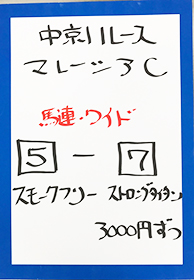 中京11レース
マレーシアC
馬連・ワイド
5 — 7
スモークフリー ストロングタイタン
3000円ずつ